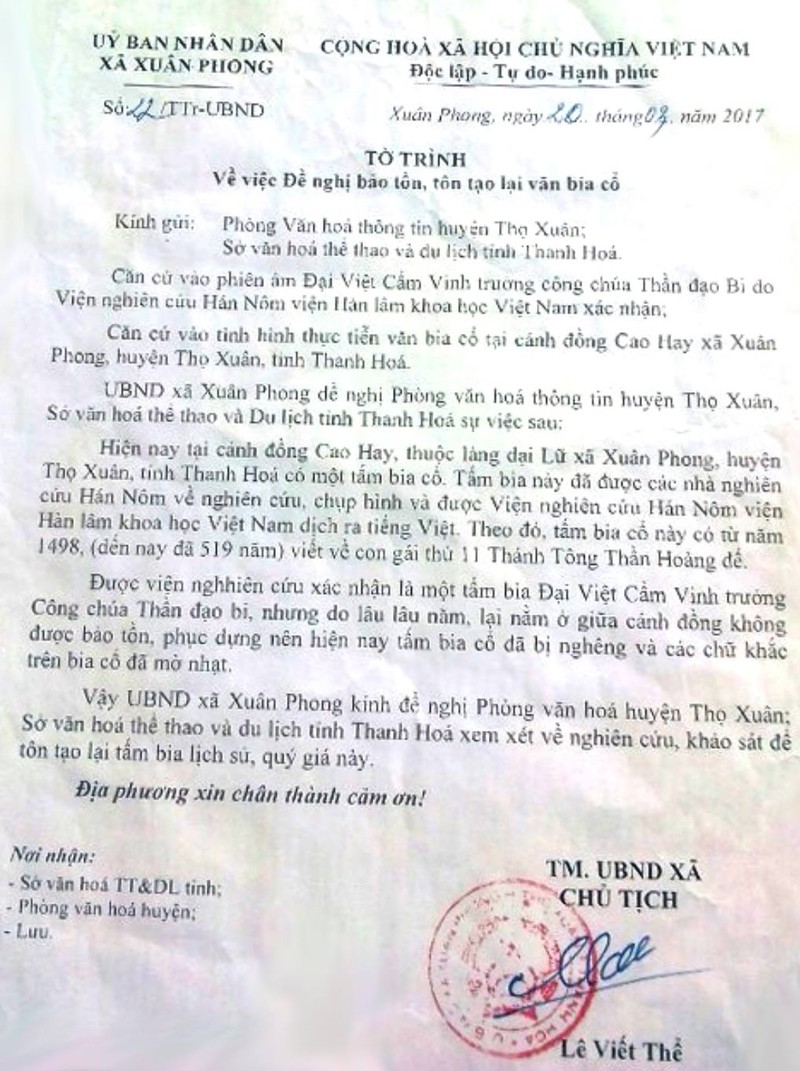 UỶ BAN NHÂN DÂN
XÃ XUÂN PHONG
CỘNG HOÀ XÃ HỘI CHỦ NGHĨA VIỆT NAM
Độc lập - Tự do- Hạnh phúc
Số: /TTr-UBND
Xuân Phong, ngày 20.. tháng 03. năm 2017
TỜ TRÌNH
Về việc Đề nghị bảo tồn, tôn tạo lại văn bia cổ
Kính gửi: Phòng Văn hoá thông tin huyện Thọ Xuân;
Sở văn hoá thể thao và du lịch tỉnh Thanh Hoá.
Căn cứ vào phiên âm Đại Việt Cẩm Vinh trương công chúa Thần đạo Bi do
Viện nghiên cứu Hán Nôm viện Hàn lâm khoa học Việt Nam xác nhận;
Căn cứ vào tình hình thực tiễn văn bia cổ tại cánh đồng Cao Hay xã Xuân
Phong, huyện Thọ Xuân, tỉnh Thanh Hoá.
UBND xã Xuân Phong đề nghị Phòng văn hoá thông tin huyện Thọ Xuân,
Sở văn hoá thể thao và Du lịch tỉnh Thanh Hoá sự việc sau:
Hiện nay tại cánh đồng Cao Hay, thuộc làng đại Lữ xã Xuân Phong, huyện
Thọ Xuân, tỉnh Thanh Hoá có một tấm bia cổ. Tấm bia này đã được các nhà nghiên
cứu Hán Nôm về nghiên cứu, chụp hình và được Viện nghiên cứu Hán Nôm viện
Hàn lâm khoa học Việt Nam dịch ra tiếng Việt. Theo đó, tấm bia cổ này có từ năm
1498, (đến nay đã 519 năm) viết về con gái thứ 11 Thánh Tông Thần Hoàng đế.
Được viện nghhiên cứu xác nhận là một tấm bia Đại Việt Cẩm Vinh trưởng
Công chúa Thần đạo bi, nhưng do lâu lâu năm, lại nằm ở giữa cánh đồng không
được bảo tồn, phục dựng nên hiện nay tấm bia cổ đã bị nghêng và các chữ khắc
trên bia cổ đã mờ nhạt.
Vậy UBND xã Xuân Phong kính đề nghị Phòng văn hoá huyện Thọ Xuân;
Sở văn hoá thể thao và du lịch tỉnh Thanh Hoá xem xét về nghiên cứu, khảo sát để
tôn tạo lại tấm bia lịch sử, quý giá này.
Địa phương xin chân thành cảm ơn!
Nơi nhận:
- Sở văn hoá TT&DL tỉnh;
- Phòng văn hoá huyện;
- Lưu.
TM. UBND XÃ
CHỦ TỊCH
Lê Viết Thể